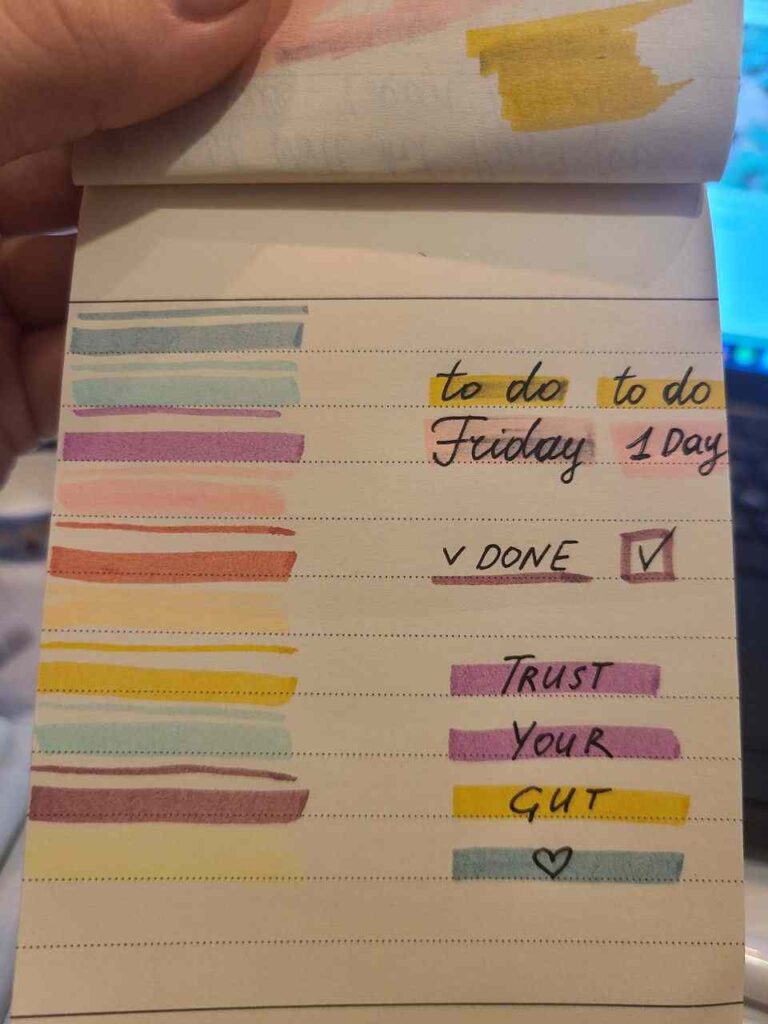 to do to do
Friday 1 Day
✓ DONE ✓
TRUST
YOUR
GUT
♡